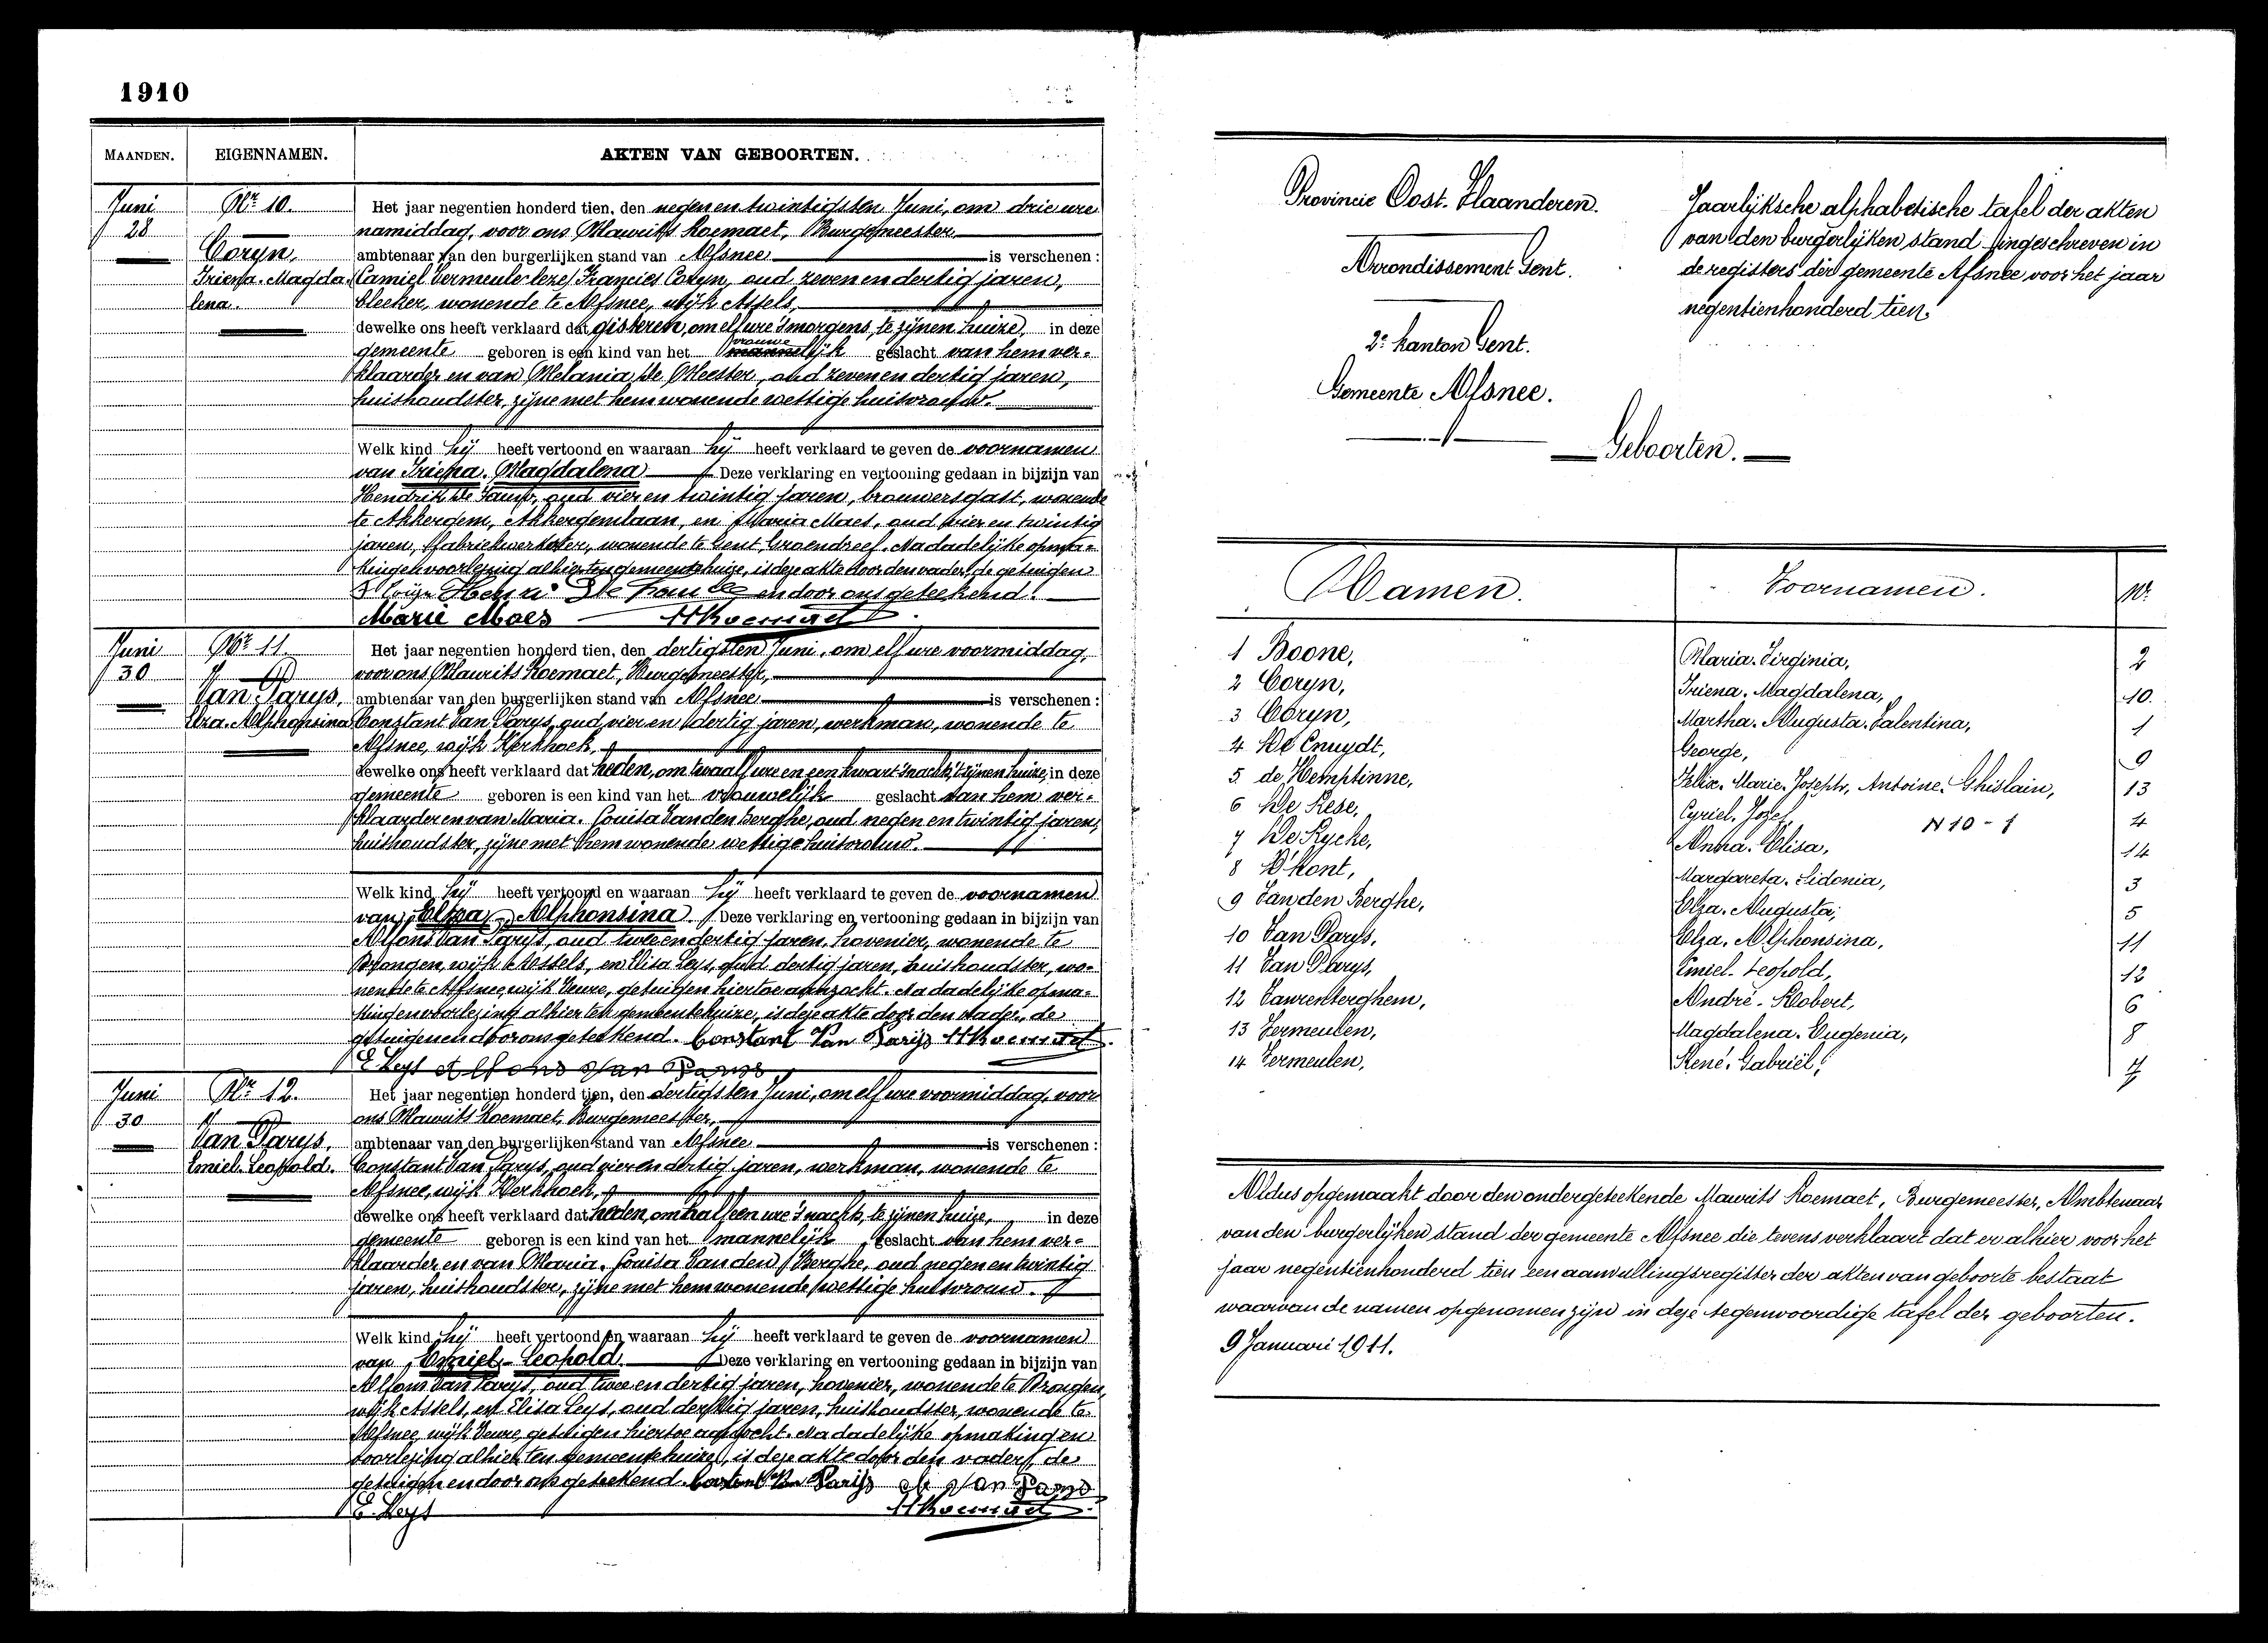 1910
MAANDEN. EIGENNAMEN. AKTEN VAN GEBOORTEN.
Juni 28
Nr. 10.
Coryn,
Iriena. Magdalena.
Het jaar negentien honderd tien, den negenentwintigsten Juni, om drie ure
namiddag, voor ons Maurits Roemaet, Burgemeester
ambtenaar van den burgerlijken stand van Afsnee is verschenen:
Camiel Coryn, oud zevenendertig jaren,
bleeker, wonende te Afsnee, wijk Assels,
dewelke ons heeft verklaard dat gisteren, om elf ure 's morgens, te zijnen huize, in deze
gemeente geboren is een kind van het vrouwelijk geslacht van hem ver-
klaarder en van Melania De Meester, oud zevenendertig jaren,
huishoudster, zijne met hem wonende wettige huisvrouw.
Welk kind hij heeft vertoond en waaraan hij heeft verklaard te geven de voornamen
van Iriena. Magdalena Deze verklaring en vertooning gedaan in bijzijn van
Hendrik oud vier en twintig jaren, brouwersgast, wonende
te Akkergem, Akkergemlaan, en Maria Maes, oud vier en twintig
jaren, fabriekwerkster, wonende te Gent, Groendreef. Na dadelijke opma-
king en voorlezing alhier ten gemeentehuize, is deze akte door den vader, de getuigen
en door ons geteekend.
Marie Maes MRoemaet
Juni 30
Nr. 11.
Van Parys,
Elza. Alphonsina
Het jaar negentien honderd tien, den dertigsten Juni, om elf ure voormiddag,
voor ons Maurits Roemaet, Burgemeester,
ambtenaar van den burgerlijken stand van Afsnee is verschenen:
Constant Van Parys, oud vier en dertig jaren, werkman, wonende te
Afsnee, wijk Kerkhoek,
dewelke ons heeft verklaard dat heden, om twaalf ure en een kwart 's nachts, te zijnen huize, in deze
gemeente geboren is een kind van het vrouwelijk geslacht van hem ver-
klaarder en van Maria. Louisa Van den Berghe, oud negen en twintig jaren,
huishoudster, zijne met hem wonende wettige huisvrouw.
Welk kind hij heeft vertoond en waaraan hij heeft verklaard te geven de voornamen
van Elza - Alphonsina. Deze verklaring en vertooning gedaan in bijzijn van
Alfons Van Parys, oud twee en dertig jaren, hovenier, wonende te
Drongen, wijk Assels, en Elisa Leys, oud dertig jaren, huishoudster, wo-
nende te Afsnee, wijk Veure, getuigen hiertoe aanzocht. Na dadelijke opma-
king en voorlezing alhier ten gemeentehuize, is deze akte door den vader, de
getuigen en door ons geteekend. Constant Van Parijs MRoemaet
E. Leys Alfons Van Parys
Juni 30
Nr. 12.
Van Parys,
Emiel. Leopold.
Het jaar negentien honderd tien, den dertigsten Juni, om elf ure voormiddag, voor
ons Maurits Roemaet, Burgemeester,
ambtenaar van den burgerlijken stand van Afsnee is verschenen:
Constant Van Parys, oud vier en dertig jaren, werkman, wonende te
Afsnee, wijk Kerkhoek,
dewelke ons heeft verklaard dat heden, om half een ure 's nachts, te zijnen huize, in deze
gemeente geboren is een kind van het mannelijk geslacht van hem ver-
klaarder en van Maria. Louisa Van den Berghe, oud negen en twintig
jaren, huishoudster, zijne met hem wonende wettige huisvrouw.
Welk kind hij heeft vertoond en waaraan hij heeft verklaard te geven de voornamen
van Emiel - Leopold. Deze verklaring en vertooning gedaan in bijzijn van
Alfons Van Parys, oud twee en dertig jaren, hovenier, wonende te Drongen,
wijk Assels, en Elisa Leys, oud dertig jaren, huishoudster, wonende te
Afsnee, wijk Veure, getuigen hiertoe aanzocht. Na dadelijke opmaking en
voorlezing alhier ten gemeentehuize, is deze akte door den vader, de
getuigen en door ons geteekend. Constant Van Parijs A Van Parys
E. Leys MRoemaet
Provincie Oost. Vlaanderen.
Arrondissement Gent.
2e kanton Gent.
Gemeente Afsnee.
Jaarlijksche alphabetische tafel der akten
van den burgerlijken stand ingeschreven in
de registers der gemeente Afsnee voor het jaar
negentienhonderd tien.
Geboorten.
Namen. Voornamen. Nr.
1 Boone, Maria. Virginia, 2
2 Coryn, Iriena. Magdalena, 10
3 Coryn, Martha. Augusta. Valentina, 1
4 De Cnuydt, George, 9
5 de Hemptinne, Felix. Marie. Joseph, Antoine. Ghislain, 13
6 De Rese, Cyriel. Jozef, 4
N 10 - 1
7 De Rycke, Anna. Elisa, 14
8 D'Hont, Margareta. Sidonia, 3
9 Van den Berghe, Elza. Augusta, 5
10 Van Parys, Elza. Alphonsina, 11
11 Van Parys, Emiel. Leopold, 12
12 Vaurenterghem, André. Robert, 6
13 Vermeulen, Magdalena. Eugenia, 8
14 Vermeulen, René. Gabriël, 7
Aldus opgemaakt door den ondergeteekende Maurits Roemaet, Burgemeester, Ambtenaar
van den burgerlijken stand der gemeente Afsnee die tevens verklaart dat er alhier voor het
jaar negentienhonderd tien een aanvullingsregister der akten van geboorte bestaat
waarvan de namen opgenomen zijn in deze tegenwoordige tafel der geboorten.
9 Januari 1911.